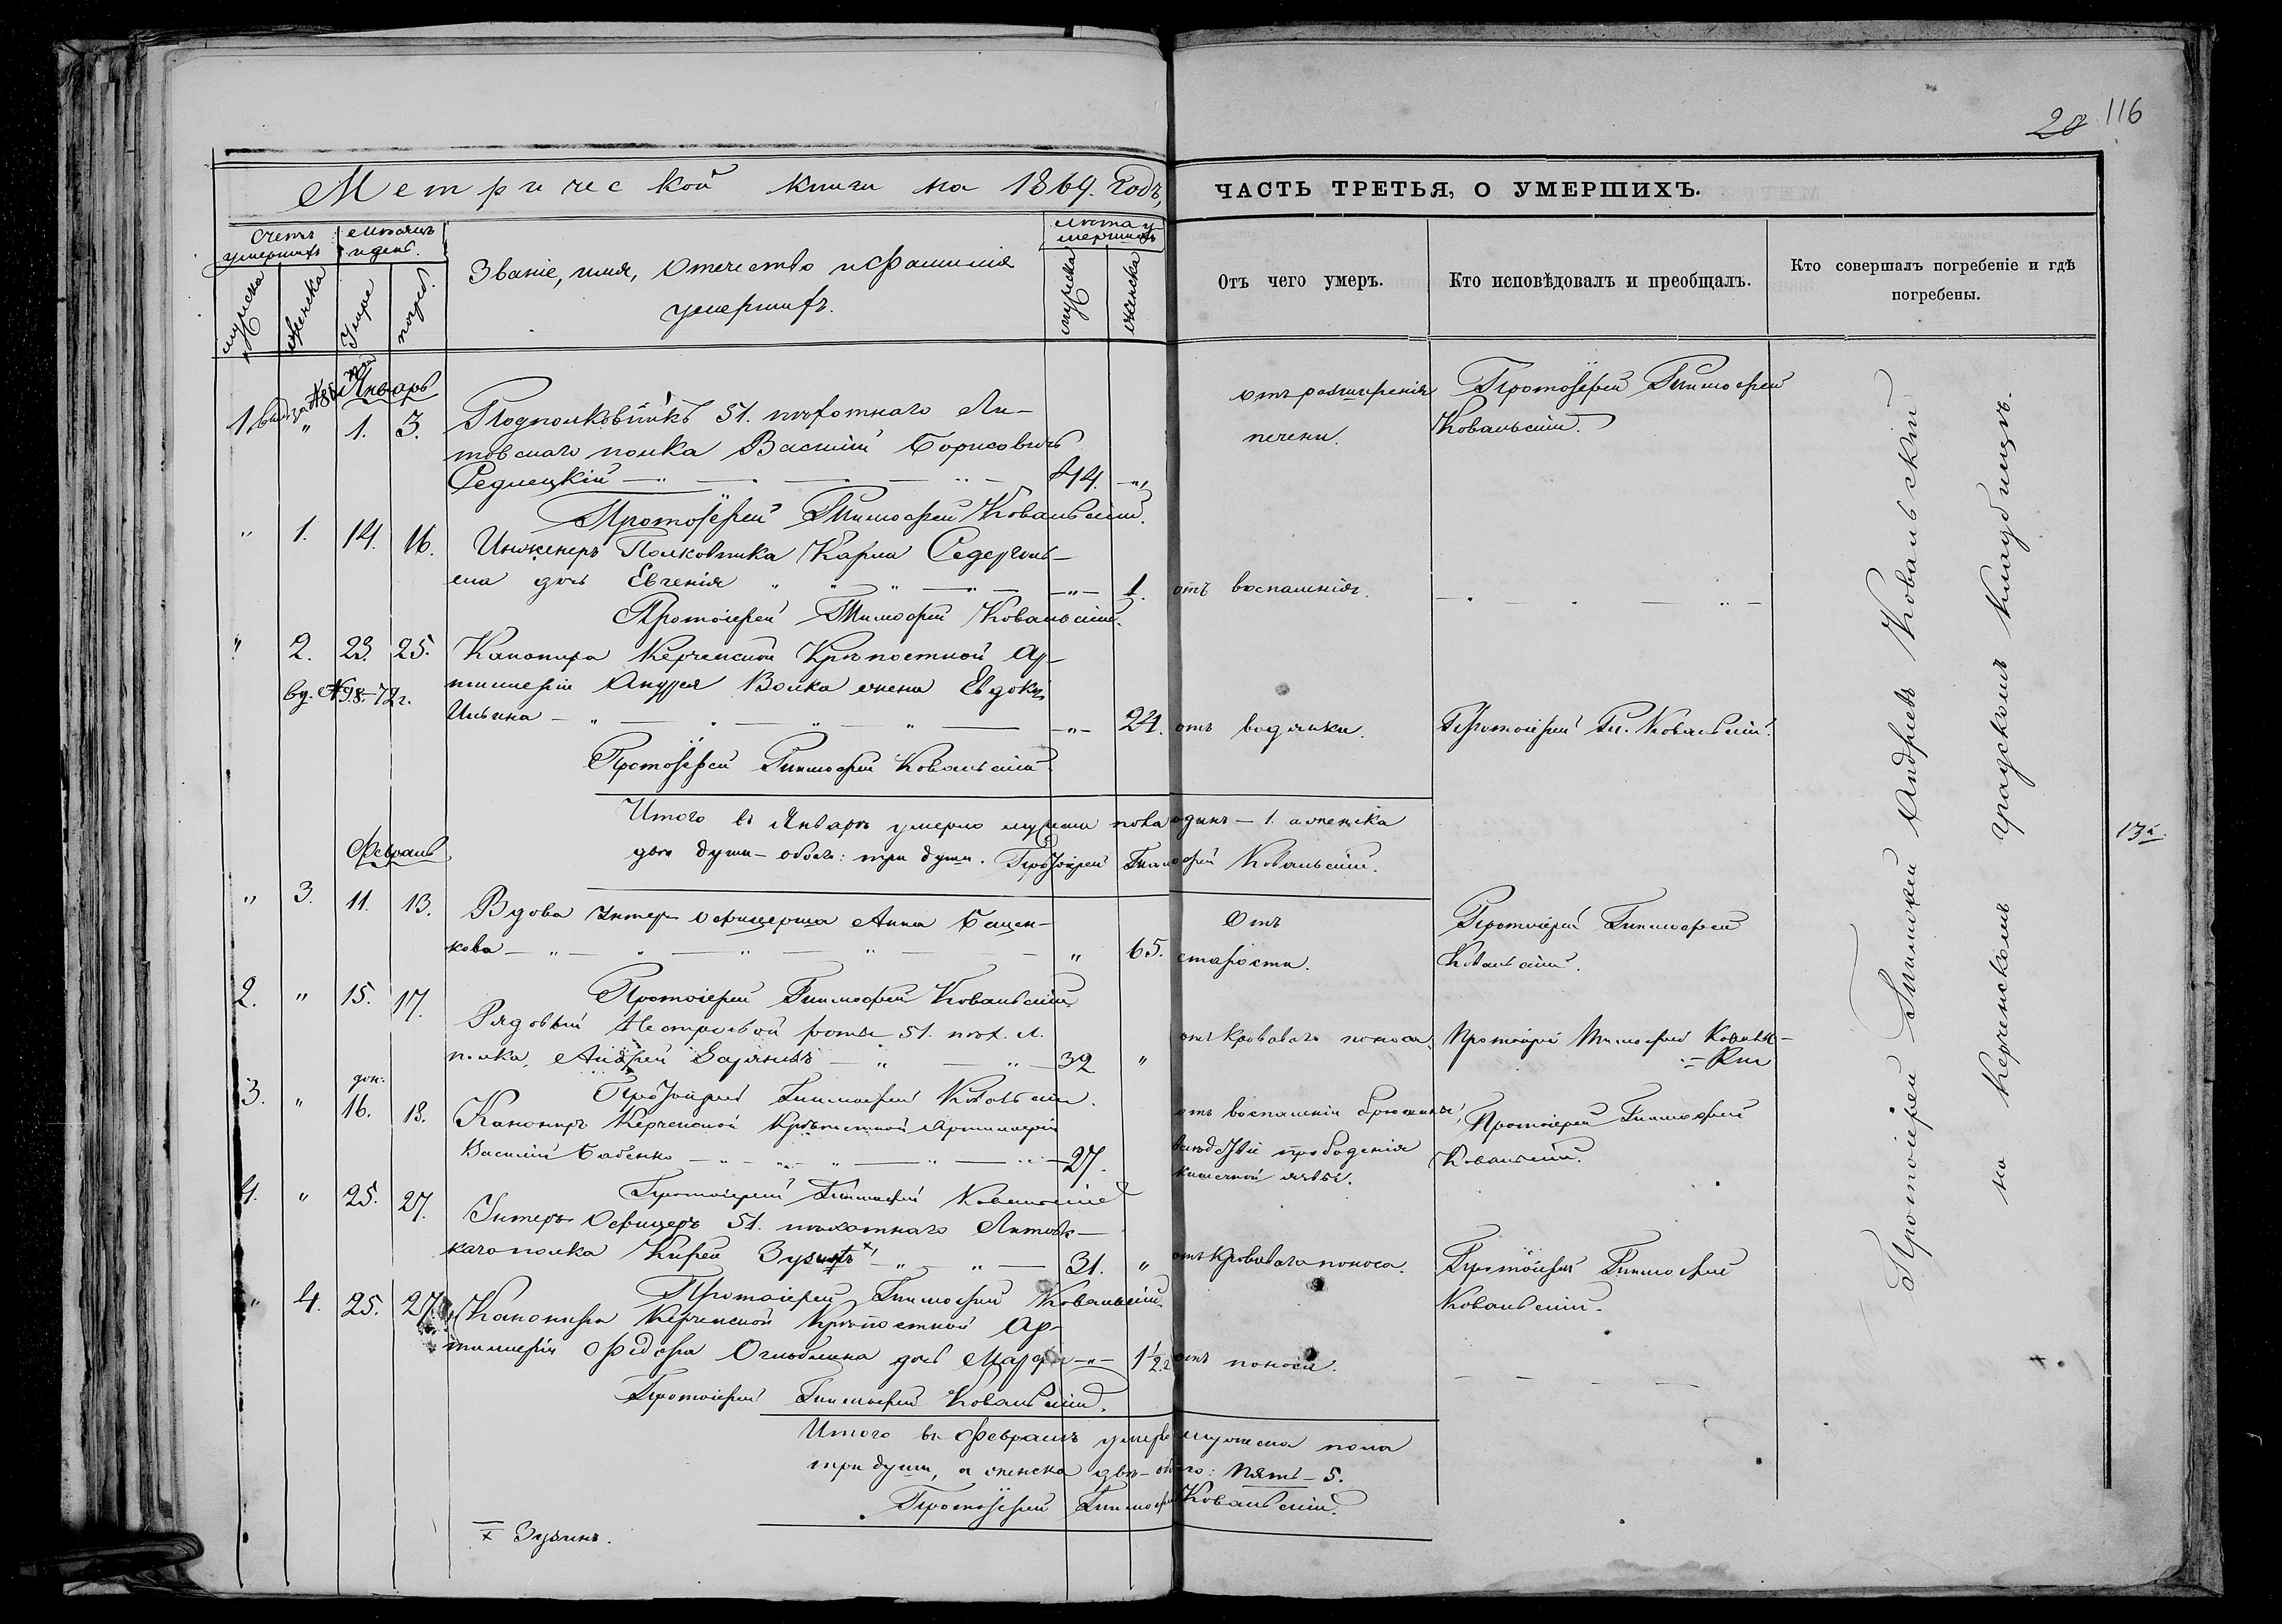 20 116
Метрической книги на 1869. Годъ,
ЧАСТЬ ТРЕТЬЯ, О УМЕРШИХЪ.
Счетъ умершихъ
мѣсяцъ и день.
Званіе, имя, отчество и фамилія умершихъ.
лѣта умершихъ
мужеска
женска
Умре
погреб.
мужеска
женска
Отъ чего умеръ.
Кто исповѣдовалъ и преобщалъ.
Кто совершалъ погребеніе и гдѣ
погребены.
Январь
1. " 1. 3. Подполковникъ 51. пѣхотнаго Ли-
товскаго полка Василій Борисовичъ
Седлецкій 44. "
отъ расширенія
печени.
Протоіерей Тимофей
Ковальскій.
Протоіерей Тимофей Ковальскій.
" 1. 14. 16. Инженеръ Полковника Карла Седергиль-
ма дочь Евгенія " 1. отъ воспаленія.
Протоіерей Тимофей Ковальскій.
" 2. 23. 25. Канонира Керченской Крѣпостной Ар-
тиллеріи Андрея Волка жена Евдокія
Ильина " 24. отъ водянки. Протоіерей Ти. Ковальскій.
Протоіерей Тимофей Ковальскій.
Итого въ Январѣ умерло мужеска пола одинъ - 1. а женска
двѣ души - обоего: три души. Протоіерей Тимофей Ковальскій.
13.
Февраль
" 3. 11. 13. Вдова Унтер-офицерша Анна Бацен-
кова " 65. Отъ
старости.
Протоіерей Тимофей
Ковальскій.
Протоіерей Тимофей Ковальскій.
2. " 15. 17. Рядовый Нестроевой роты 51. пѣх. Л.
полка, Андрей 32 "
отъ кроваваго поноса. Протоіерей Тимофей Коваль-
скій
Протоіерей Тимофей Ковальскій.
3. " 16. 18. Канониръ Керченской Крѣпостной Артиллеріи
Василій Бабенко 27.
отъ воспаленія брюшины,
вслѣдствіе прободенія
кишечной язвы.
Протоіерей Тимофей
Ковальскій.
Протоіерей Тимофей Ковальскій
4. " 25. 27. Унтеръ Офицеръ 51. пѣхотнаго Литовс-
каго полка Кирей 31. " отъ кроваваго поноса.
Протоіерей Тимофей
Ковальскій.
Протоіерей Тимофей Ковальскій.
" 4. 25. 27. Канонира Керченской Крѣпостной Ар-
тиллеріи Федора Оглоблина дочь Марфа " 1 1/2 отъ поноса.
Протоіерей Тимофей Ковальскій.
Итого въ Февралѣ умерло мужеска пола
три души, а женска двѣ - обоего: пять - 5.
Протоіерей Тимофей Ковальскій.
x Зузинъ.
Протоіерей Тимофей Андреевъ Ковальскій
на Керченскомъ градскомъ кладбищѣ.